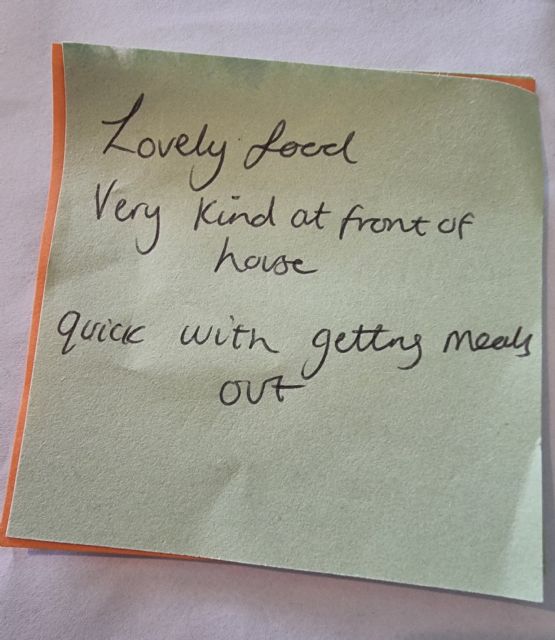 Lovely food
Very kind at front of
house
quick with getting meals
out